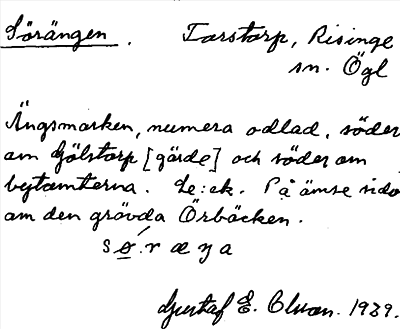 Sörängen. Torstorp, Risinge
sn. Ögl
Ängsmarken, numera odlad, söder
om Gölstorp [gärde] och söder om
bytomterna. Le:ek. På ömse sido
om den grövda Örbäcken.
sǿ̱.ræŋa
Gustaf E. Olson. 1939.